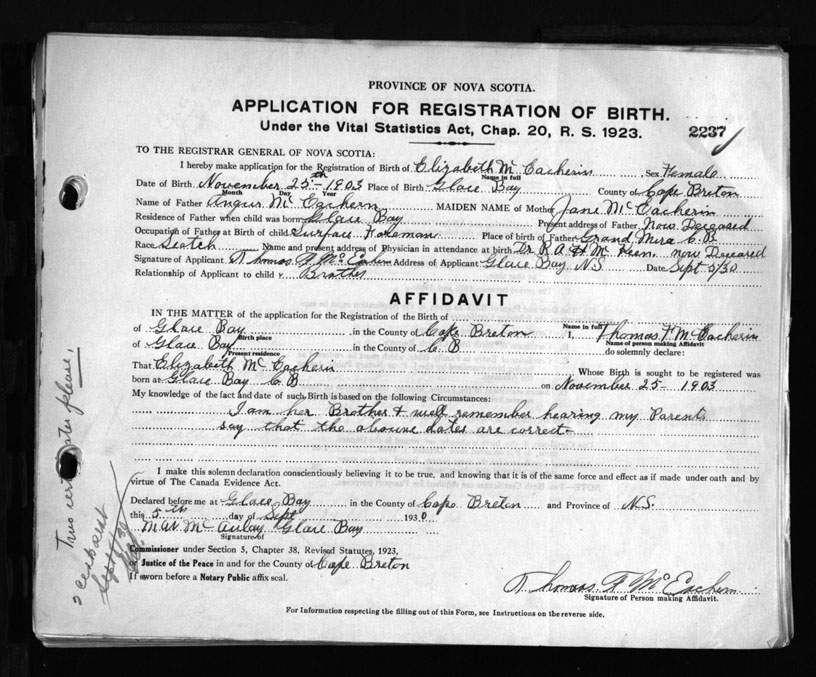 PROVINCE OF NOVA SCOTIA.
APPLICATION FOR REGISTRATION OF BIRTH.
Under the Vital Statistics Act, Chap. 20, R. S. 1923.
2237
TO THE REGISTRAR GENERAL OF NOVA SCOTIA:
I hereby make application for the Registration of Birth of Elizabeth Mc Eacherin Sex Female
Name in full
Date of Birth November 25th 1903 Place of Birth Glace Bay County of Cape Breton
Month Day Year
Name of Father Angus Mc Eachern MAIDEN NAME of Mother Jane McEacherin
Residence of Father when child was born Glace Bay Present address of Father Now Deceased
Occupation of Father at Birth of child Surface Foreman Place of birth of Father Grand Mira C.B.
Race Scotch Name and present address of Physician in attendance at birth Dr R. A. H. Mc Keen. now Deceased
Signature of Applicant Thomas F McEachern Address of Applicant Glace Bay N.S Date Sept 5/30
Relationship of Applicant to child Brother
AFFIDAVIT
IN THE MATTER of the application for the Registration of the Birth of
Name in full
of Glace Bay in the County of Cape Breton I, Thomas F McEacherin
Birth place Name of person making Affidavit
of Glace Bay in the County of C B do solemnly declare:
Present residence
That Elizabeth Mc Eacherin Whose Birth is sought to be registered was
born at Glace Bay C B on November 25 - 1903
My knowledge of the fact and date of such Birth is based on the following Circumstances:
I am her Brother & well remember hearing my Parents
say that the above dates are correct
I make this solemn declaration conscientiously believing it to be true, and knowing that it is of the same force and effect as if made under oath and by
virtue of The Canada Evidence Act.
Declared before me at Glace Bay in the County of Cape Breton and Province of N.S.
this 5th day of Sept 1930
M. W. McAulay Glace Bay
Signature of
Commissioner under Section 5, Chapter 38, Revised Statutes, 1923,
or Justice of the Peace in and for the County of Cape Breton
If sworn before a Notary Public affix seal.
Thomas F McEachern
Signature of Person making Affidavit.
For Information respecting the filling out of this Form, see Instructions on the reverse side.
Two certificates please,
2 cert sent
Sept 8/30